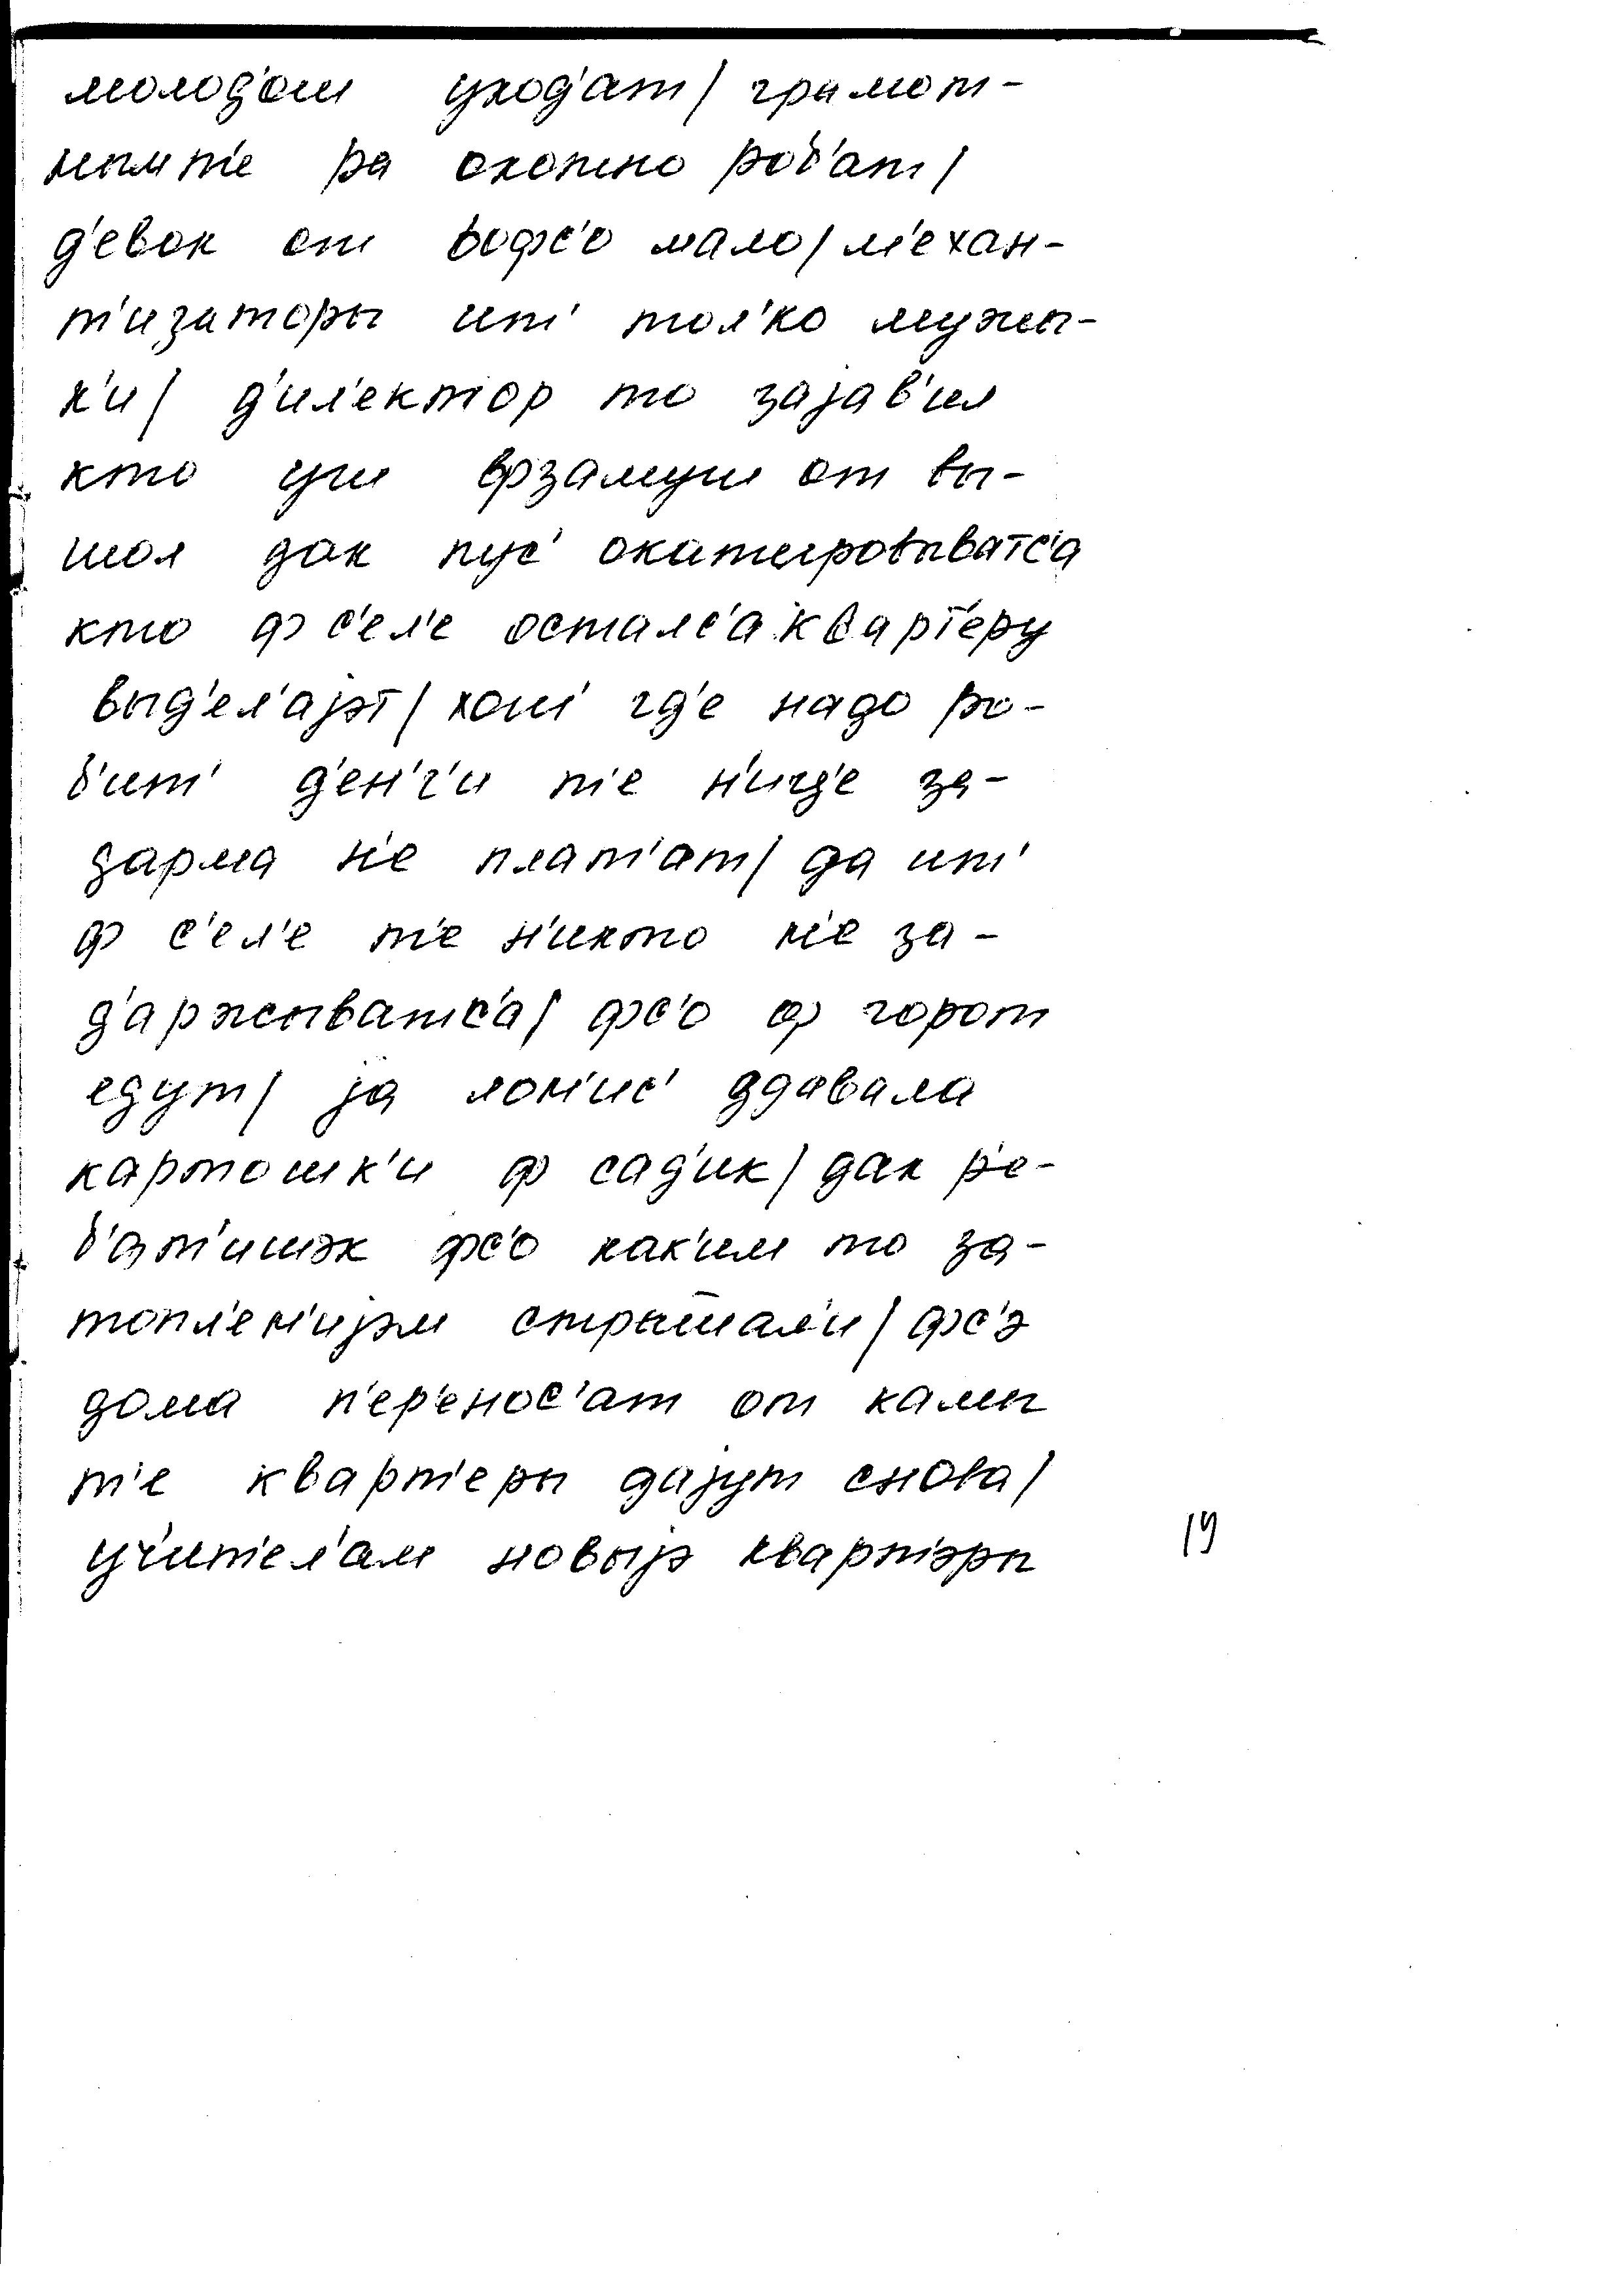 молод'ош уход'ат/ грамот-
ным т'е ра охотно роб'ат/
д'евок от вофс'о мало/ м'ехан-
т'изаторы ит' тол'ко мужы-
к'и/ д'ил'ектор то зајав'ил
кто уш врзамуш от вы-
шол дак пус' окатыровыватс'а
кто ф с'ел'е осталс'а кварт'еру
выд'ел'ајэт/ хош' гд'е надо ро-
б'ит' д'ен'г'и т'е н'игд'е за-
дарма н'е плат'ат/ да ит'
ф с'ел'е т'е н'икто н'е за-
д'аржыватс'а/ фс'о ф горот
едут/ ја лон'ис' здавала
картошк'и ф сад'ик/ дак р'е-
б'ат'ишэк фс'о как'им то за-
топл'ен'ијэм стращал'и/ фс'э
дома п'ер'енос'ат от камы
т'е кварт'еры дајут снова/
уч'ит'ел'ам новыјэ квартэры
19